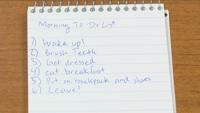 Morning To-Do List
1) Wake up!
2) Brush Teeth
3) Get dressed
4) eat breakfast
5) Put on backpack and shoes
6) Leave!